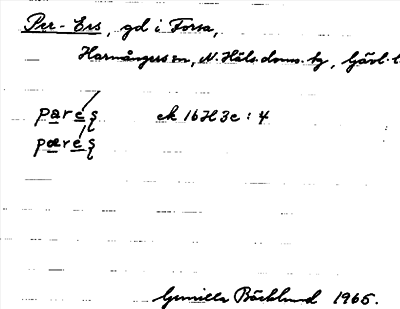 Per-Ers, gd i Forsa,
Harmångers sn, N. Häls. doms. tg, Gävl. l
pareş ek 16H3c : 4
pæreş
Gunilla Bäcklund 1965.